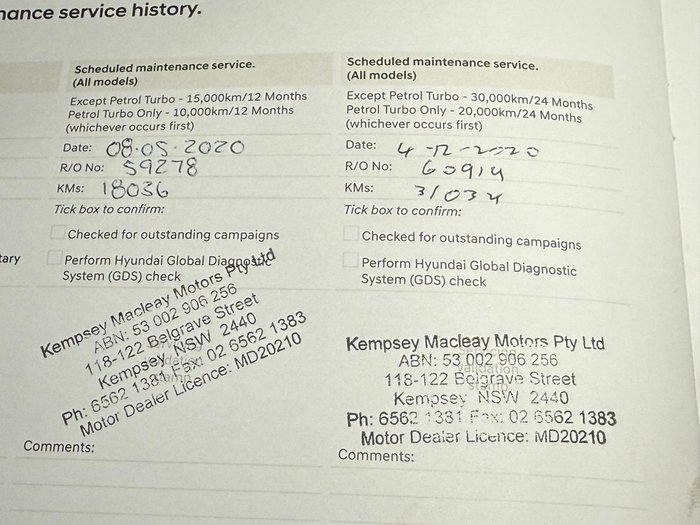 nance service history.
Scheduled maintenance service.
(All models)
Except Petrol Turbo - 15,000km/12 Months
Petrol Turbo Only - 10,000km/12 Months
(whichever occurs first)
Date: 08.05.2020
R/O No: 59278
KMs: 18036
Tick box to confirm:
Checked for outstanding campaigns
Perform Hyundai Global Diagnostic
System (GDS) check
Kempsey Macleay Motors Pty Ltd
ABN: 53 002 906 256
118-122 Belgrave Street
Kempsey NSW 2440
Ph: 6562 1381 Fax: 02 6562 1383
Motor Dealer Licence: MD20210
Comments:
Scheduled maintenance service.
(All models)
Except Petrol Turbo - 30,000km/24 Months
Petrol Turbo Only - 20,000km/24 Months
(whichever occurs first)
Date: 4-12-2020
R/O No: 60914
KMs: 31034
Tick box to confirm:
Checked for outstanding campaigns
Perform Hyundai Global Diagnostic
System (GDS) check
Kempsey Macleay Motors Pty Ltd
ABN: 53 002 906 256
validation
118-122 Belgrave Street
stamp
Kempsey NSW 2440
Ph: 6562 1381 Fax: 02 6562 1383
Motor Dealer Licence: MD20210
Comments:
tary